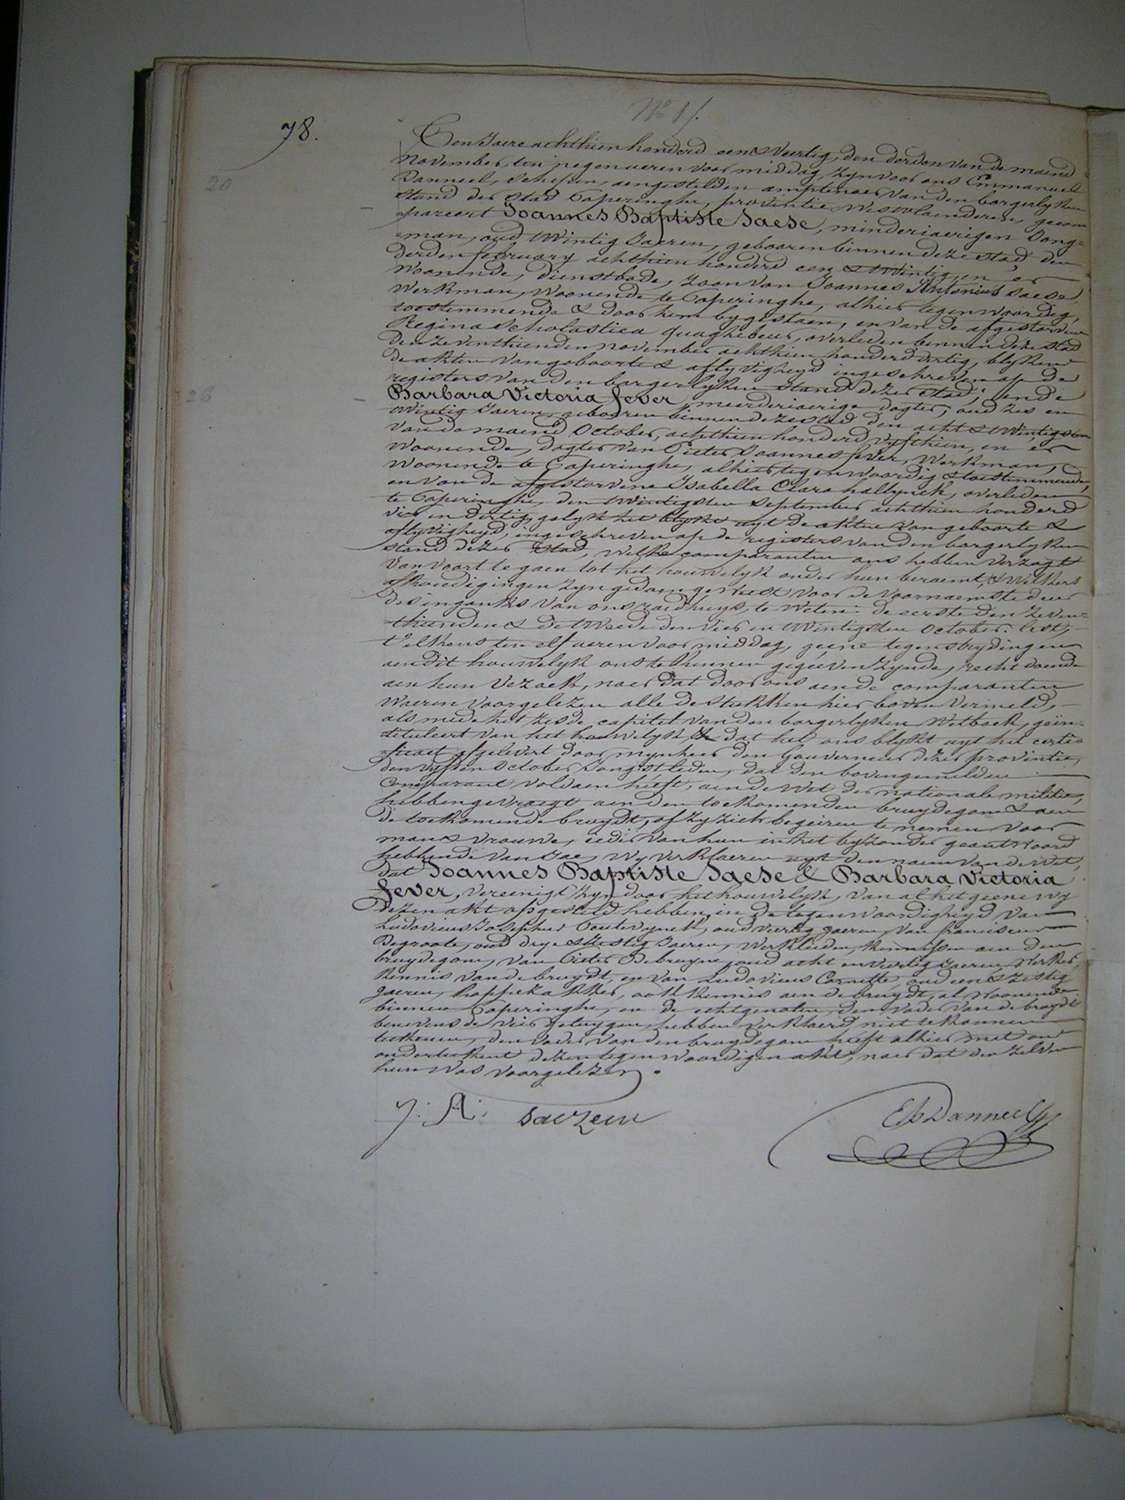 78.
20
28
Den Jaere achthien honderd een & veertig, den derden van de maend
November, ten negen uren voor middag, zyn voor ons Emmanuel
Danneel, Schepen, aengestelden amptenaer van den borgerlyken
stand der Stad Poperinghe, provintie Westvlaenderen, gecom
-pareert Joannes Baptiste Saese, minderjaerigen Jong-
-man, oud twintig Jaeren, gebooren binnen deze stad den
derden february achthien honderd een & twintig, en er
Woonende, dienstbode, zoon van Joannes Antonius Saese,
Werkman, Woonende te Poperinghe, alhier tegenwoordig,
toestemmende & door hem bygestaen, en van de afgestorvene
Regina Scholastica Quaghebeur, overleden binnen deze stad
den zeventhienden november achthien honderd dertig, blykens
de akten van geboorte & aflyvigheyd ingeschreven op de
registers van den borgerlyken stand dezer Stad; ende
Barbara Victoria Fever, meerderjaerige dogter, oud zes en
twintig Jaeren, gebooren binnen deze stad den acht & twintigsten
van de maend October, achthien honderd vyfthien, en er
Woonende, dogter van Pieter Joannes Fever, Werkman,
Woonende te Poperinghe, alhier tegenwoordig & toestemmende,
en van de afgestorvene Isabella Clara hallynck, overleden
te Poperinghe, den twintigsten September achthien honderd
vier en dertig, gelyk het blykt uyt de akten van geboorte &
aflyvigheyd, ingeschreven op de registers van den borgerlyken
stand dezer Stad, welke comparanten ons hebben verzogt
van voort te gaen tot het houwelyk onder hun beraemt, & Welkers
afkondigingen zyn gedaen geweest voor de voornaemste deur
des ingangs van ons raedhuys, te weten: de eerste den zeven-
-thienden & de tweede den vier en twintigsten October lest,
t'elkens ten elf uren voor middag, geene tegenstrydingen
aen dit houwelyk ons te kennen gegeeven zynde, recht doende
aen hun Verzoek, naer dat door ons aen de comparanten
waeren voorgelezen alle de stukken hier boven vermeld,
als mede het zesde capitel van den borgerlyken Wetboek, gein-
-tituleert van het houwelyk & dat het ons blykt uyt het certi-
-ficaet afgelevert door mynheer den Gouverneur dezer provintie,
den vyfden October Jongstleden, dat den bovengemelden
Comparant voldaen heeft, aen de Wet der nationale militie,
hebben gevraegt aen den toekomenden bruydegom & aen
de toekomende bruydt, of zy zich begeiren te nemen voor
man & vrouwe, ieder van hun in het byzonder geantwoord
hebbende van Jae, Wy verklaeren uyt den naem van de Wet,
dat Joannes Baptiste Saese & Barbara Victoria
Fever, vereenigt zyn door het houwelyk, van al het geene wy
dezen akt opgesteld hebben, in de tegenwoordigheyd van
Ludovicus Josephus oud veertig Jaeren, van franciscus
Degroote, oud drye & zestig Jaeren, Werklieden, kennissen aen den
bruydegom, van Pieter Debruyne, oud acht en veertig Jaeren, Werker,
kennis van de bruydt, en van Ludovicus Cornette, oud een & zestig
Jaeren, ook kennis aen de bruydt, al Woonende
binnen Poperinghe, en de echtgenoten, den vader van de bruydt
benevens de vier getuygen, hebben verklaerd niet te konnen
teekenen, den vader van den bruydegom heeft alhier met ons
onderteekent dezen tegenwoordigen akt, naer dat die zelve
hun was voorgelezen.
J: A: Saezen Es Danneel